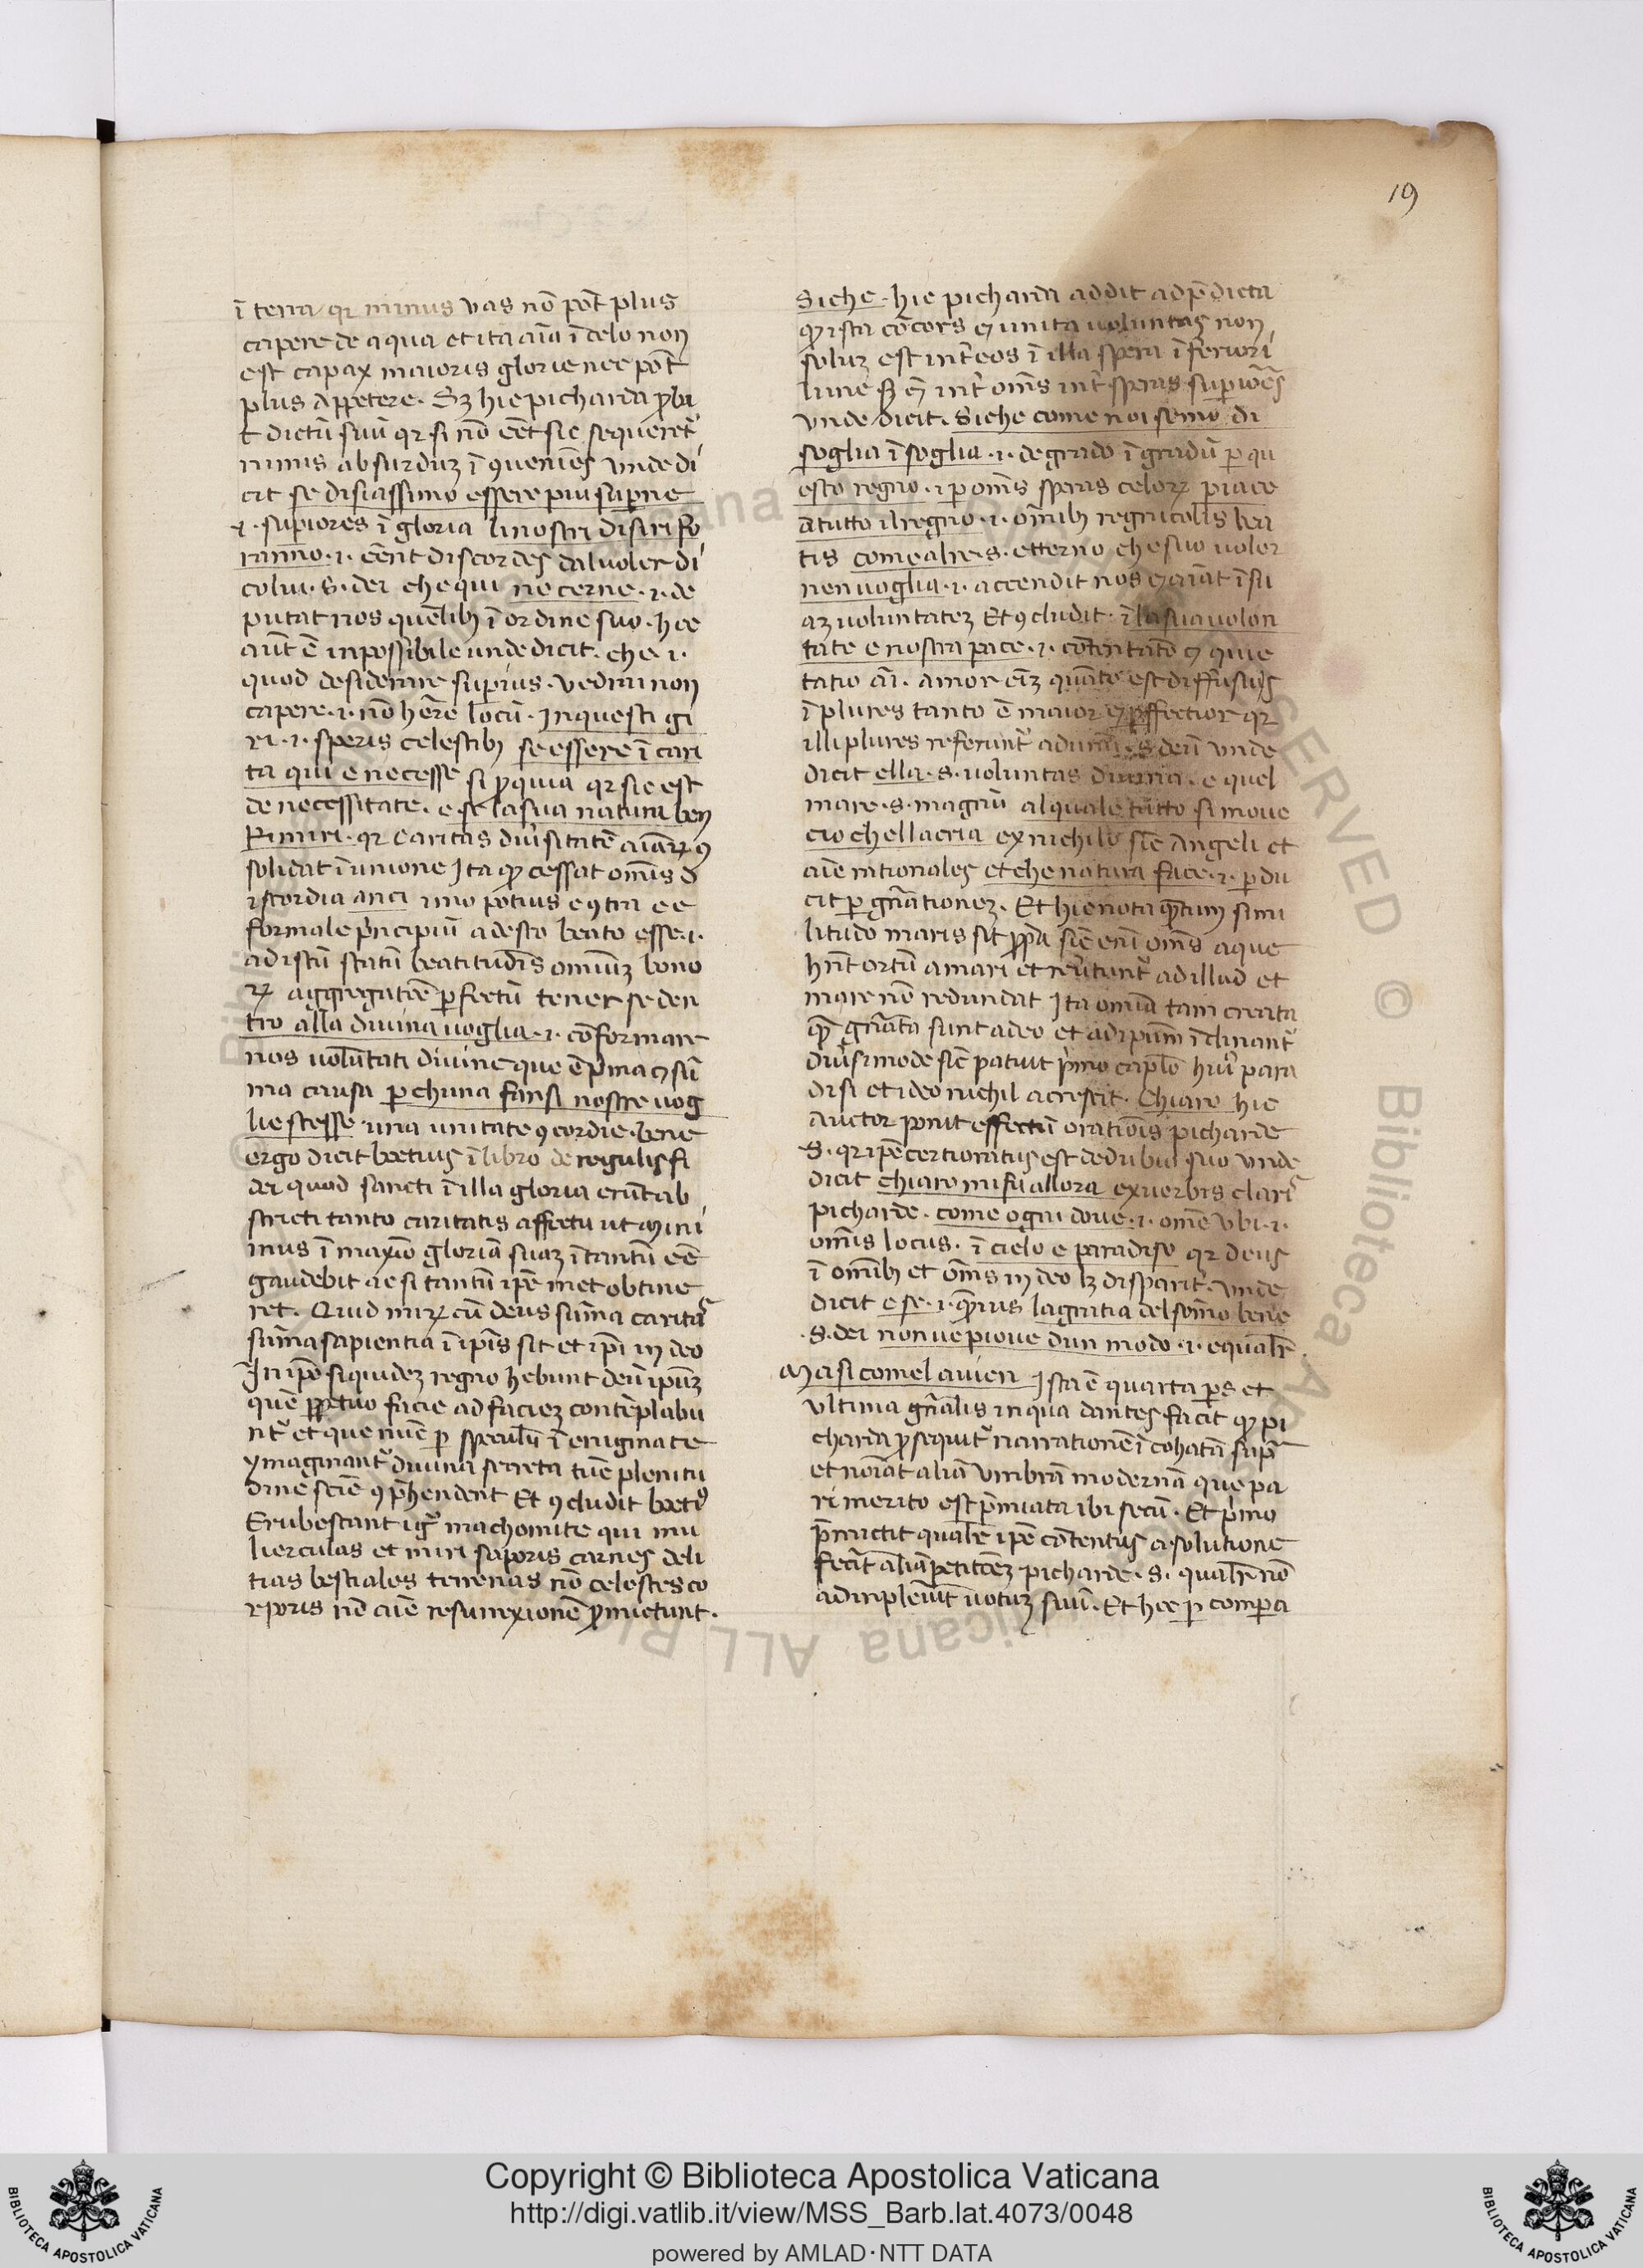 19
ī terra qr minus vas nō pōt plus
capere de aqua et ita aīa ī celo non
est capax maioris glorie nec pōt
plus appetere. Sʒ hic picharda ꝓba
t dictū suū qr si nō eēt sic sequeret᷑
nimis absurduʒ ī ꝯueniēs vnde di
cit se disiassimo essere piu superne
.i. supiores ī gloria li nostri disiri fo
ranno .i. eēnt discordes dal voler di
colui .s. dei che qui ne cerne .i. de
putat nos quēlibꝫ ī ordine suo. hec
aūt ē inpossibile unde dicit. che .i.
quod desiderare supius. vedrai non
capere .i. nō hēre locū. Inquesti gi
ri .i. speris celestibꝫ se essere ī cari
ta qui e necesse si ꝓ quia qr sic est
de necessitate. e se la sua natura ben
Rimiri. qr caritas diūsitatē aīaꝝ ꝯ
solidat ī unione Ita ꝙ cessat omīs d
iscordia anci imo potius eꝯtra e e
formale pͥncipiū adesto beato esse .i.
ad istū statū beatitudīs omniuʒ bono
ꝝ aggregatōe ꝑfectū tener se den
tro alla divina voglia .i. cōformare
nos volūtati divine que ē pͥma ⁊ sū
ma causa ꝑ chuna fansi nostre vog
lie stesse una unitate ꝯcordie. bene
ergo dicit boetius ī libro de regulis fi
dei quod sancti ī illa gloria erūt ab
stricti tanto caritatis affectu ut mini
mus ī maxīo gloriā suaʒ ī tantū eē
gaudebit ac si tantū ipē met obtine
ret. Quid miꝝ cū deus sūma caritas
sūma sapientia ī ipīs sit et ipī in deo
In ipō siquideʒ regno hebunt deū ipūʒ
quē ꝑpetuo facie ad facieʒ contēplabu
nt᷑ et que nūc ꝑ speculū ī enigmate
ymaginant᷑ divina secreta tūc plenitu
dine sciē ꝯpͤhendent Et ꝯcludit boetiꝰ
Erubescant igͥ machomite qui mu
lierculas et miri saporis carnes deli
tias bestiales terrenas nō celestes co
rporis nō aīe resurexionē ꝓmictunt.
Siche. hic picharda addit ad pͤdicta
ꝙ ista cōcors ⁊ unita voluntas non
soluʒ est inter eos ī illa spera īferiori
lune sʒ ē int᷑ omēs int᷑ speras supiōres
vnde dicit. Siche come noi semo di
soglia ī soglia .i. de grado ī gradū ꝑ qu
esto regno .i. ꝑ omēs speras celoꝝ piace
a tutto il regno .i. omībꝫ regnicolis bea
tis come alre .s. etterno che suo voler
nen voglia .i. accendit nos ⁊ aīat ī su
aʒ voluntateʒ Et ꝯcludit. ī la sua volon
tate e nostra pace .i. cōtentatō ⁊ quie
tatio aī. amor eīʒ quāto est diffusus
ī plures tanto ē maior ⁊ ꝑfectior qr
illi plures referunt᷑ ad unū .s. deū vnde
dicit ella .s. voluntas divina. e quel
mare .s. magnū al quale tutto si move
cio chella cria ex nichilo sīc Angeli et
aīe rationales et che natura face .i. ꝑdu
cit ꝑ gnāationeʒ. Et hic nota ꝙtum simi
litudo maris sit ꝓpͥa sīc enī omēs aque
hnt ortū a mari et revtunt᷑ ad illud et
mare nō redundat Ita omīa tam creata
ꝙ gnāta sunt a deo et ad ipum īclinant᷑
diūsimode sīc patuit pͥmo caplō huiꝰ para
disi et ideo nichil accrescit. Chiaro hic
auctor ponit effectū orationīs picharde
.s. qr ipē certioratus est de dubio suo vnde
dicit chiaro mi fu allora ex verbis clarͥ
picharde. come ogni dove .i. omē vbi .i.
omīs locus. ī cielo e paradiso qr deus
ī omībꝫ et omēs in deo lʒ disparit᷑. vnde
dicit e se .i. ꝙvius la gratia del sōmo bene
.s. dei non ve piove dun modo .i. equalr̄.
Ma si comel avien Ista ē quarta ps et
vltima gnālis in qua dantes facit ꝙ pi
charda ꝓsequit᷑ narrationē īcohatā supͣ
et noīat aliā vmbrā modernā que pa
ri merito est pͤmiata ibi secū. Et pͥmo
pͤmictit qualr̄ ipē cōtentus a solutione
fecit aliā petitōeʒ picharde .s. qualr̄ nō
adinpleuīt votuʒ suū. Et hec ꝑ compa
Copyright © Biblioteca Apostolica Vaticana
http://digi.vatlib.it/view/MSS_Barb.lat.4073/0048
powered by AMLAD·NTT DATA
BIBLIOTECA APOSTOLICA VATICANA
BIBLIOTECA APOSTOLICA VATICANA